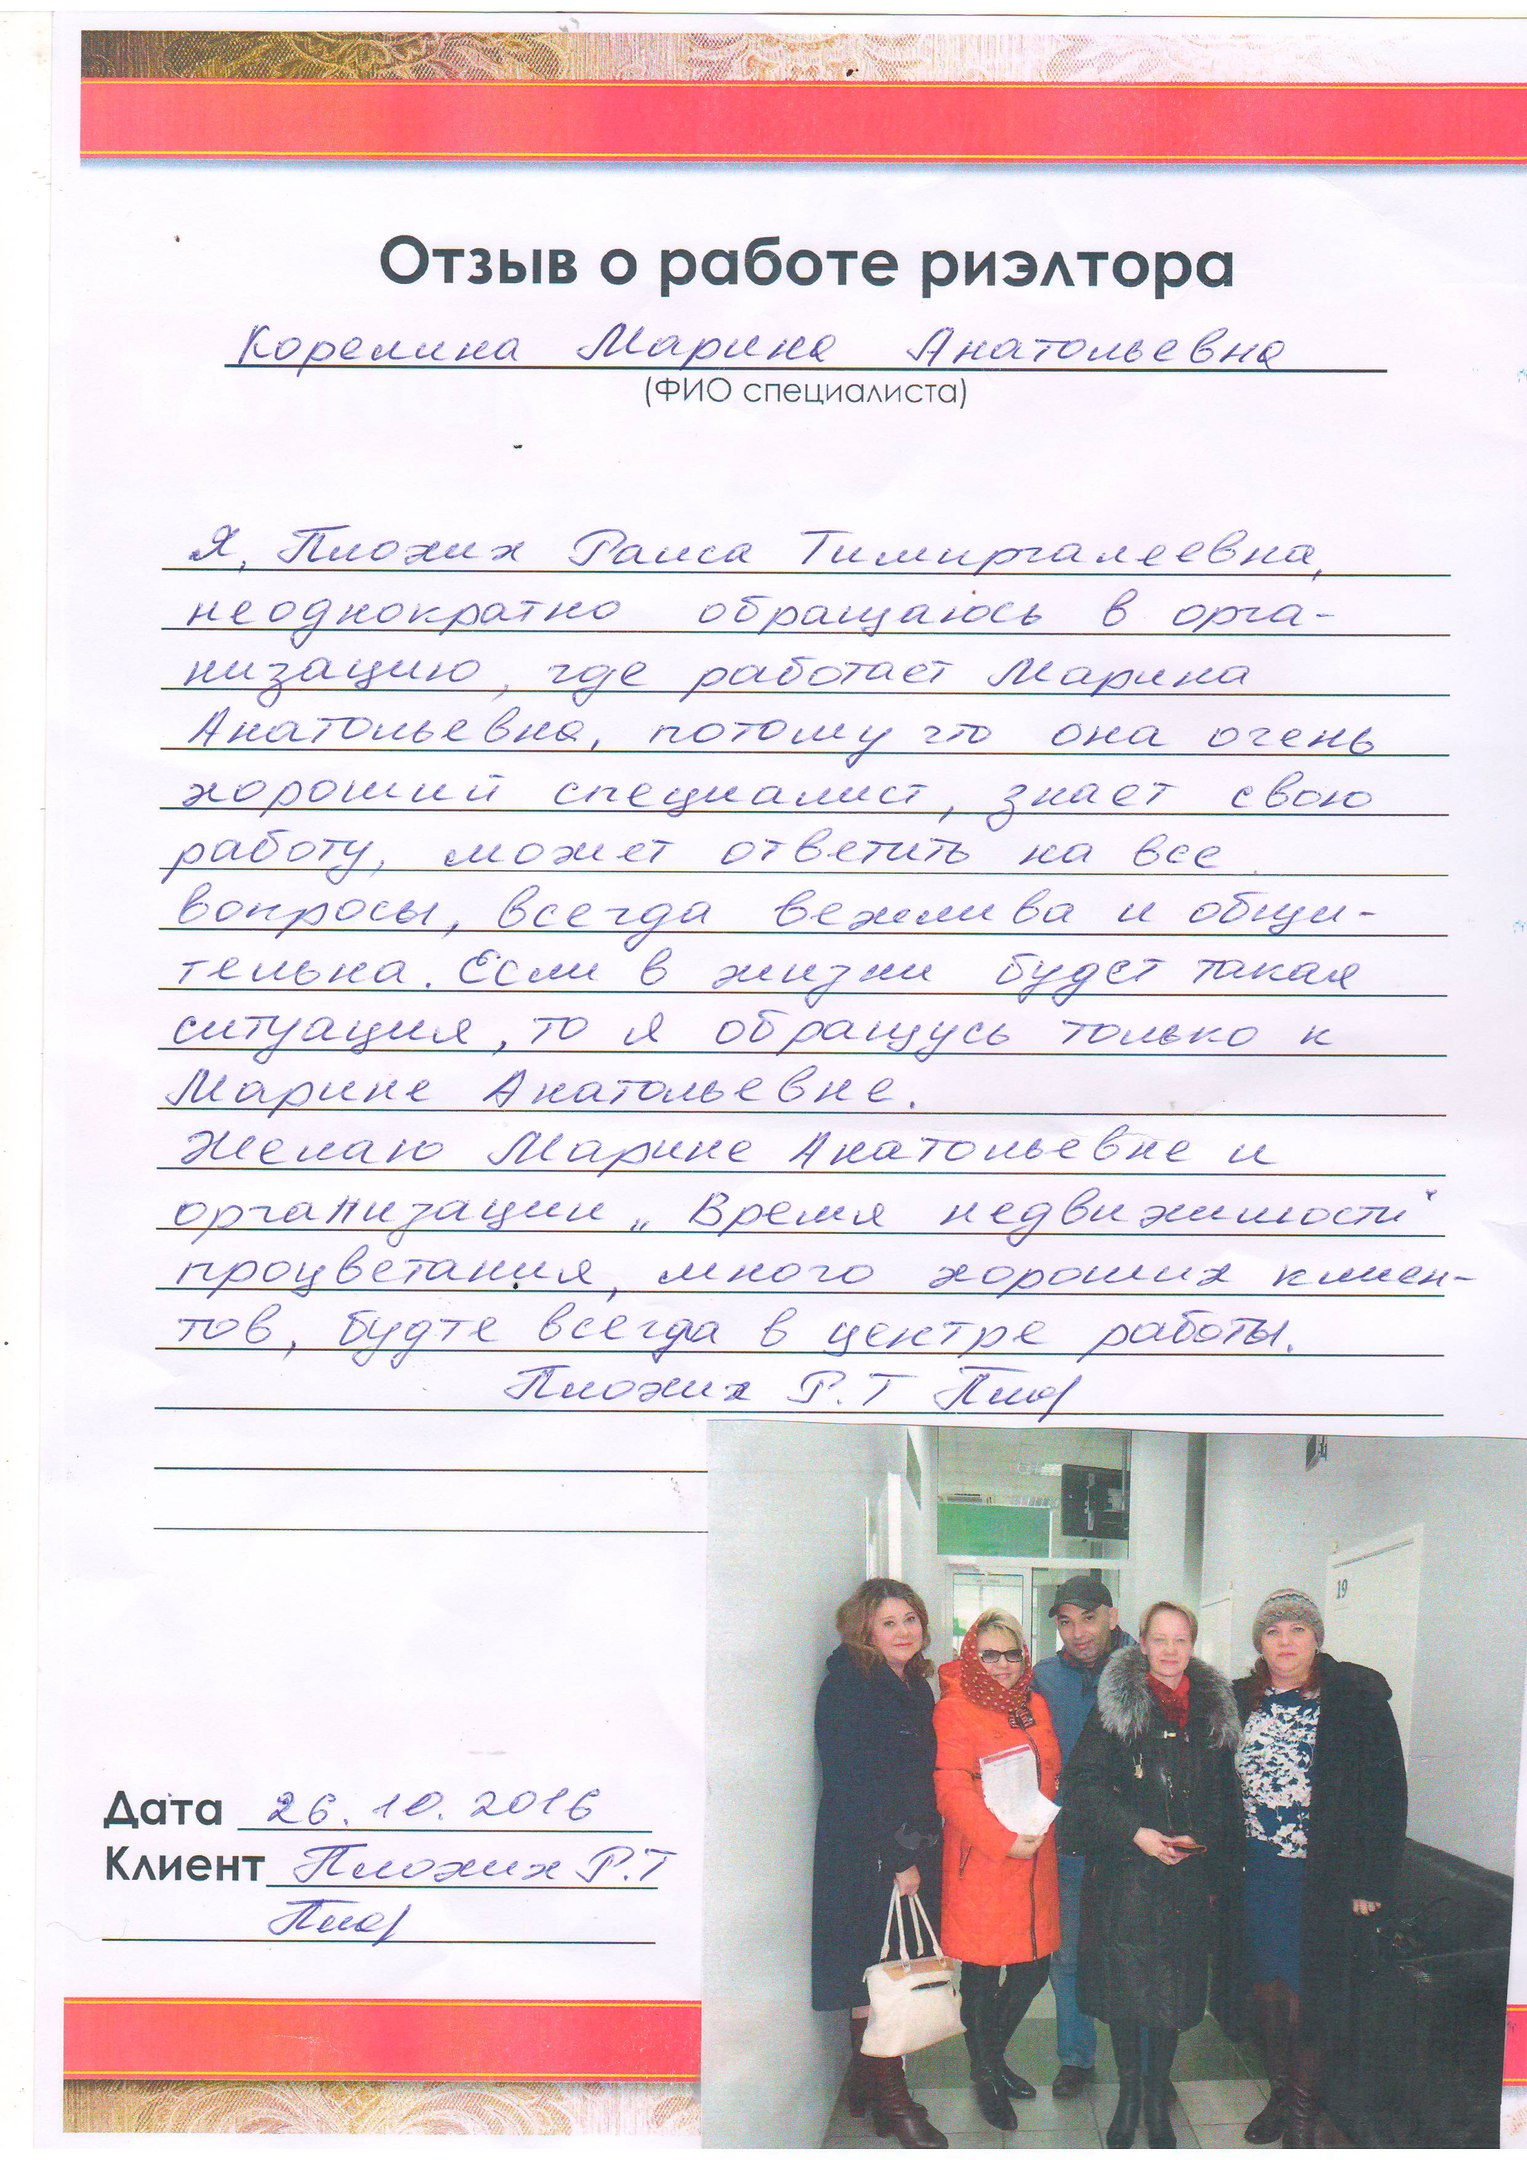 Отзыв о работе риэлтора
Корелина Марина Анатольевна
(ФИО специалиста)
Я, Плохих Раиса Тимиргалеевна,
неоднократно обращаюсь в орга-
низацию, где работает Марина
Анатольевна, потому что она очень
хороший специалист, знает свою
работу, может ответить на все
вопросы, всегда вежлива и общи-
тельна. Если в жизни будет такая
ситуация, то я обращусь только к
Марине Анатольевне.
Желаю Марине Анатольевне и
организации „Время недвижимости“
процветания, много хороших клиен-
тов, будте всегда в центре работы.
Плохих Р.Т
19
Дата 26.10.2016
Клиент Плохих Р.Т